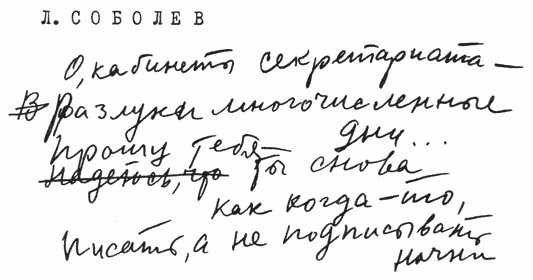 Л. СОБОЛЕВ
О, кабинеты секретариата —
В Разлуки многочисленные
дни...
Прошу тебя — ты снова
Надеюсь, что
как когда-то,
Писать, а не подписывать
начни